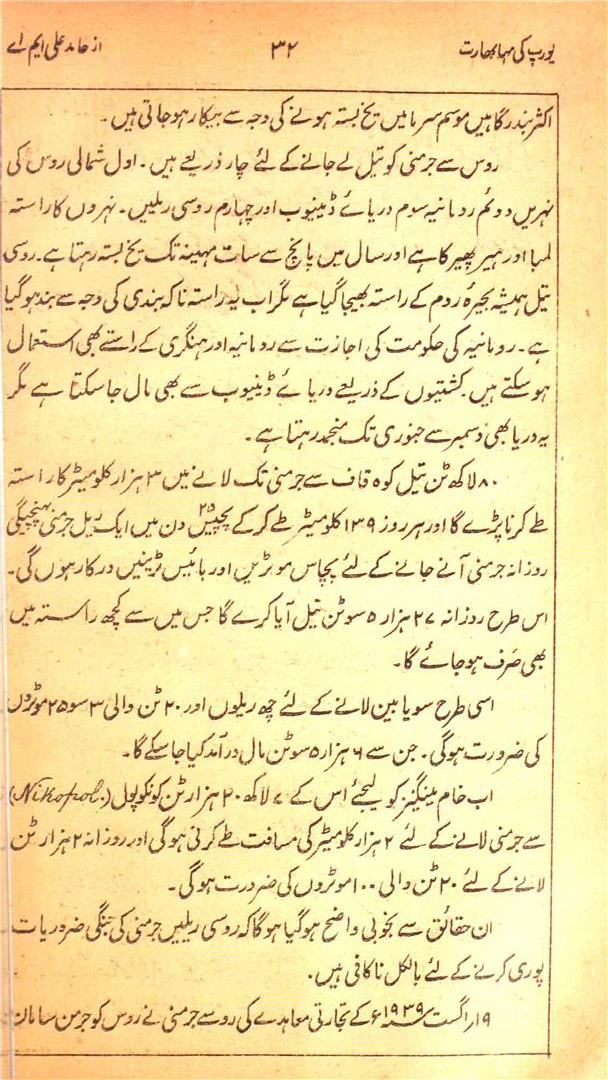 یورپ کی مہابھارت ۳۲ از حامد علی ایم اے
اکثر بندرگاہیں موسم سرما میں یخ بستہ ہونے کی وجہ سے بیکار ہو جاتی ہیں۔
روس سے جرمنی کو تیل لے جانے کے لئے چار ذریعے ہیں۔ اول شمالی روس کی
نہریں دوئم رومانیہ سوم دریائے ڈینیوب اور چہارم روسی ریلیں۔ نہروں کا راستہ
لمبا اور ہیر پھیر کا ہے اور سال میں پانچ سے سات مہینہ تک یخ بستہ رہتا ہے۔ روسی
تیل ہمیشہ بحیرۂ روم کے راستہ بھیجا گیا ہے مگر اب یہ راستہ ناکہ بندی کی وجہ سے بند ہو گیا
ہے۔ رومانیہ کی حکومت کی اجازت سے رومانیہ اور ہنگری کے راستے بھی استعمال
ہو سکتے ہیں۔ کشتیوں کے ذریعے دریائے ڈینیوب سے بھی مال جا سکتا ہے مگر
یہ دریا بھی دسمبر سے جنوری تک منجمد رہتا ہے۔
۸۰ لاکھ ٹن تیل کوہ قاف سے جرمنی تک لانے میں ۳ ہزار کلومیٹر کا راستہ
طے کرنا پڑے گا اور ہر روز ۱۳۹ کلومیٹر طے کر کے پچیس ۲۵ دن میں ایک ریل جرمنی پہنچیگی
روزانہ جرمنی آنے جانے کے لئے پچاس موٹریں اور بائیس ٹرینیں درکار ہوں گی۔
اس طرح روزانہ ۲۷ ہزار ۵ سو ٹن تیل آیا کرے گا جس میں سے کچھ راستہ میں
بھی صَرف ہو جائے گا۔
اسی طرح سویابین لانے کے لئے چھ ریلوں اور ۲۰ ٹن والی ۳ سو ۲۵ موٹروں
کی ضرورت ہوگی۔ جن سے ۶ ہزار ۵ سو ٹن مال درآمد کیا جا سکے گا۔
اب خام مینگنیز کو لیجئے اس کے ۷ لاکھ ۲۰ ہزار ٹن کو نکوپول (Nikopol.)
سے جرمنی لانے کے لئے ۲ ہزار کلومیٹر کی مسافت طے کرنی ہوگی اور روزانہ ۲ ہزار ٹن
لانے کے لئے ۲۰ ٹن والی ۱۰۰ موٹروں کی ضرورت ہوگی۔
ان حقائق سے بخوبی واضح ہو گیا ہوگا کہ روسی ریلیں جرمنی کی جنگی ضروریات
پوری کرنے کے لئے بالکل ناکافی ہیں۔
۱۹ اگست ۱۹۳۹ء کے تجارتی معاہدے کی رو سے جرمنی نے روس کو جرمن سامان